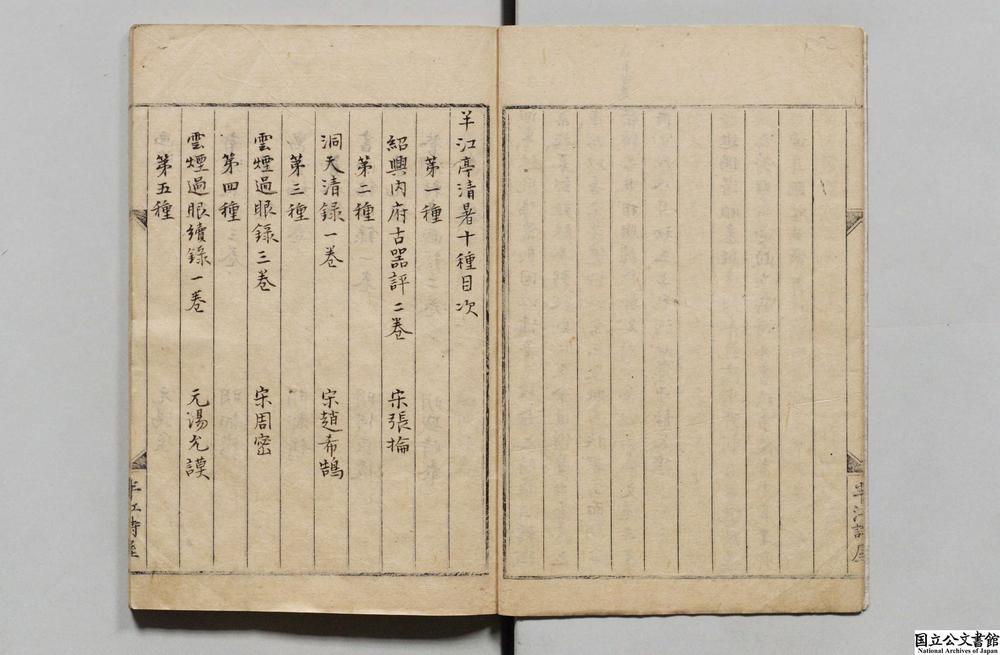 半江亭清暑十種目次
第一種
紹興內府古噐評二卷 宋張掄
第二種
洞天清錄一卷 宋趙希鵠
第三種
雲煙過眼錄三卷 宋周密
第四種
雲煙過眼續錄一卷 元湯允謨
第五種
半江詩屋
半江詩屋
国立公文書館
National Archives of Japan